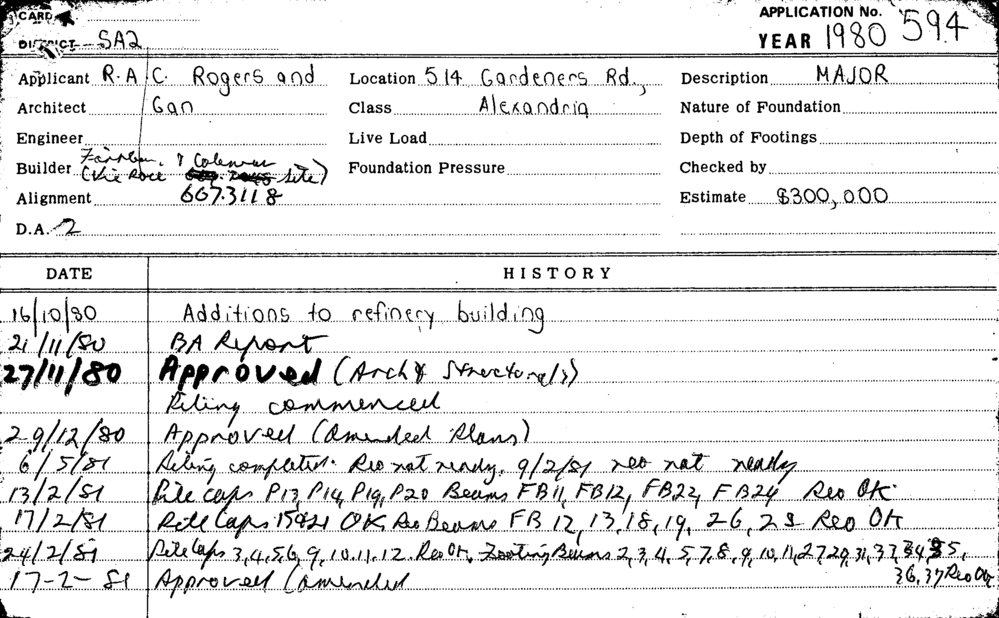 CARD
APPLICATION No. 594
DISTRICT SA2
YEAR 1980
Applicant R.A.C. Rogers and
Location 514 Gardeners Rd.,
Description MAJOR
Architect Gan
Class Alexandria
Nature of Foundation
Engineer
Live Load
Depth of Footings
Builder & Coleman
(Vic Race Site)
Foundation Pressure
Checked by
Alignment 667.3118
Estimate $300,000
D.A. 2
DATE HISTORY
16/10/80 Additions to refinery building
21/11/80 BA Report
27/11/80 Approved (Arch & Structurals)
Piling commenced
29/12/80 Approved (Amended Plans)
6/5/81 Piling completed. Reo not ready. 9/2/81 reo not ready
13/2/81 Pile caps P13, P14, P19, P20 Beams FB11, FB12, FB22, FB24 Reo OK
17/2/81 Pile Caps 15 21 OK Beams FB 12, 13, 18, 19, 26, Reo OK
24/2/81 Pile Caps 3, 4, 5, 6, 9, 10, 11, 12. Reo OK. Footing Beams 2, 3, 4, 5, 7, 8, 9, 10, 11, 27, 29, 31, 33, 34, 35,
36, 37 Reo OK
17-2-81 Approved (amended